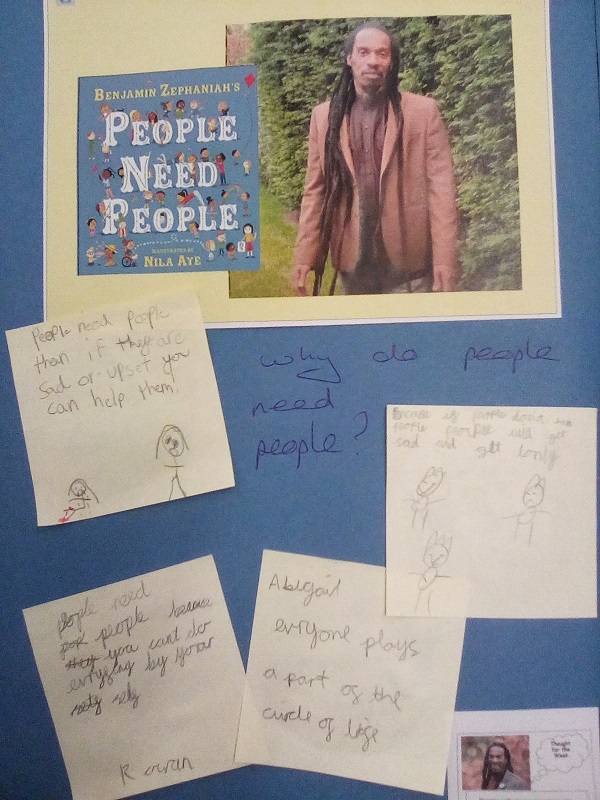 BENJAMIN ZEPHANIAH'S
PEOPLE
NEED
PEOPLE
ILLUSTRATED BY
NILA AYE
People need People
then if they are
sad or upset you
can help them!
why do people
need
people?
Because if people don't
people people will get
sad and get lonly
people need
people because
you cant do
by your
Rowan
Abigail
evryone plays
a part of the
circle of life
Thought
for the
Week